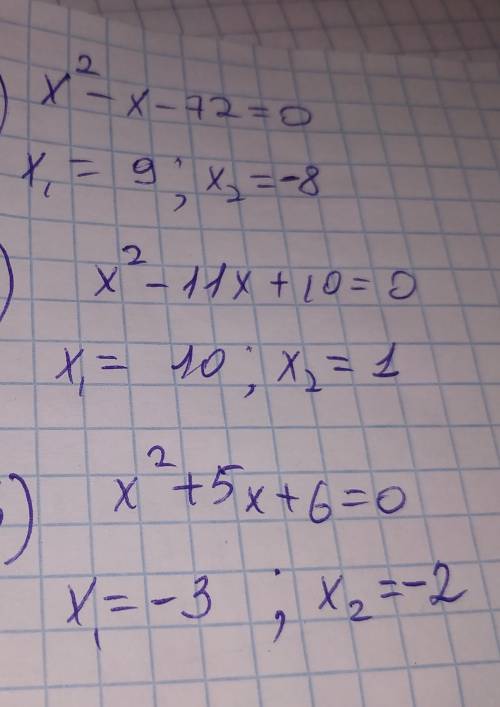 ) x² - x - 72 = 0
x₁ = 9 ; x₂ = -8
) x² - 11x + 10 = 0
x₁ = 10 ; x₂ = 1
) x² + 5x + 6 = 0
x₁ = -3 ; x₂ = -2